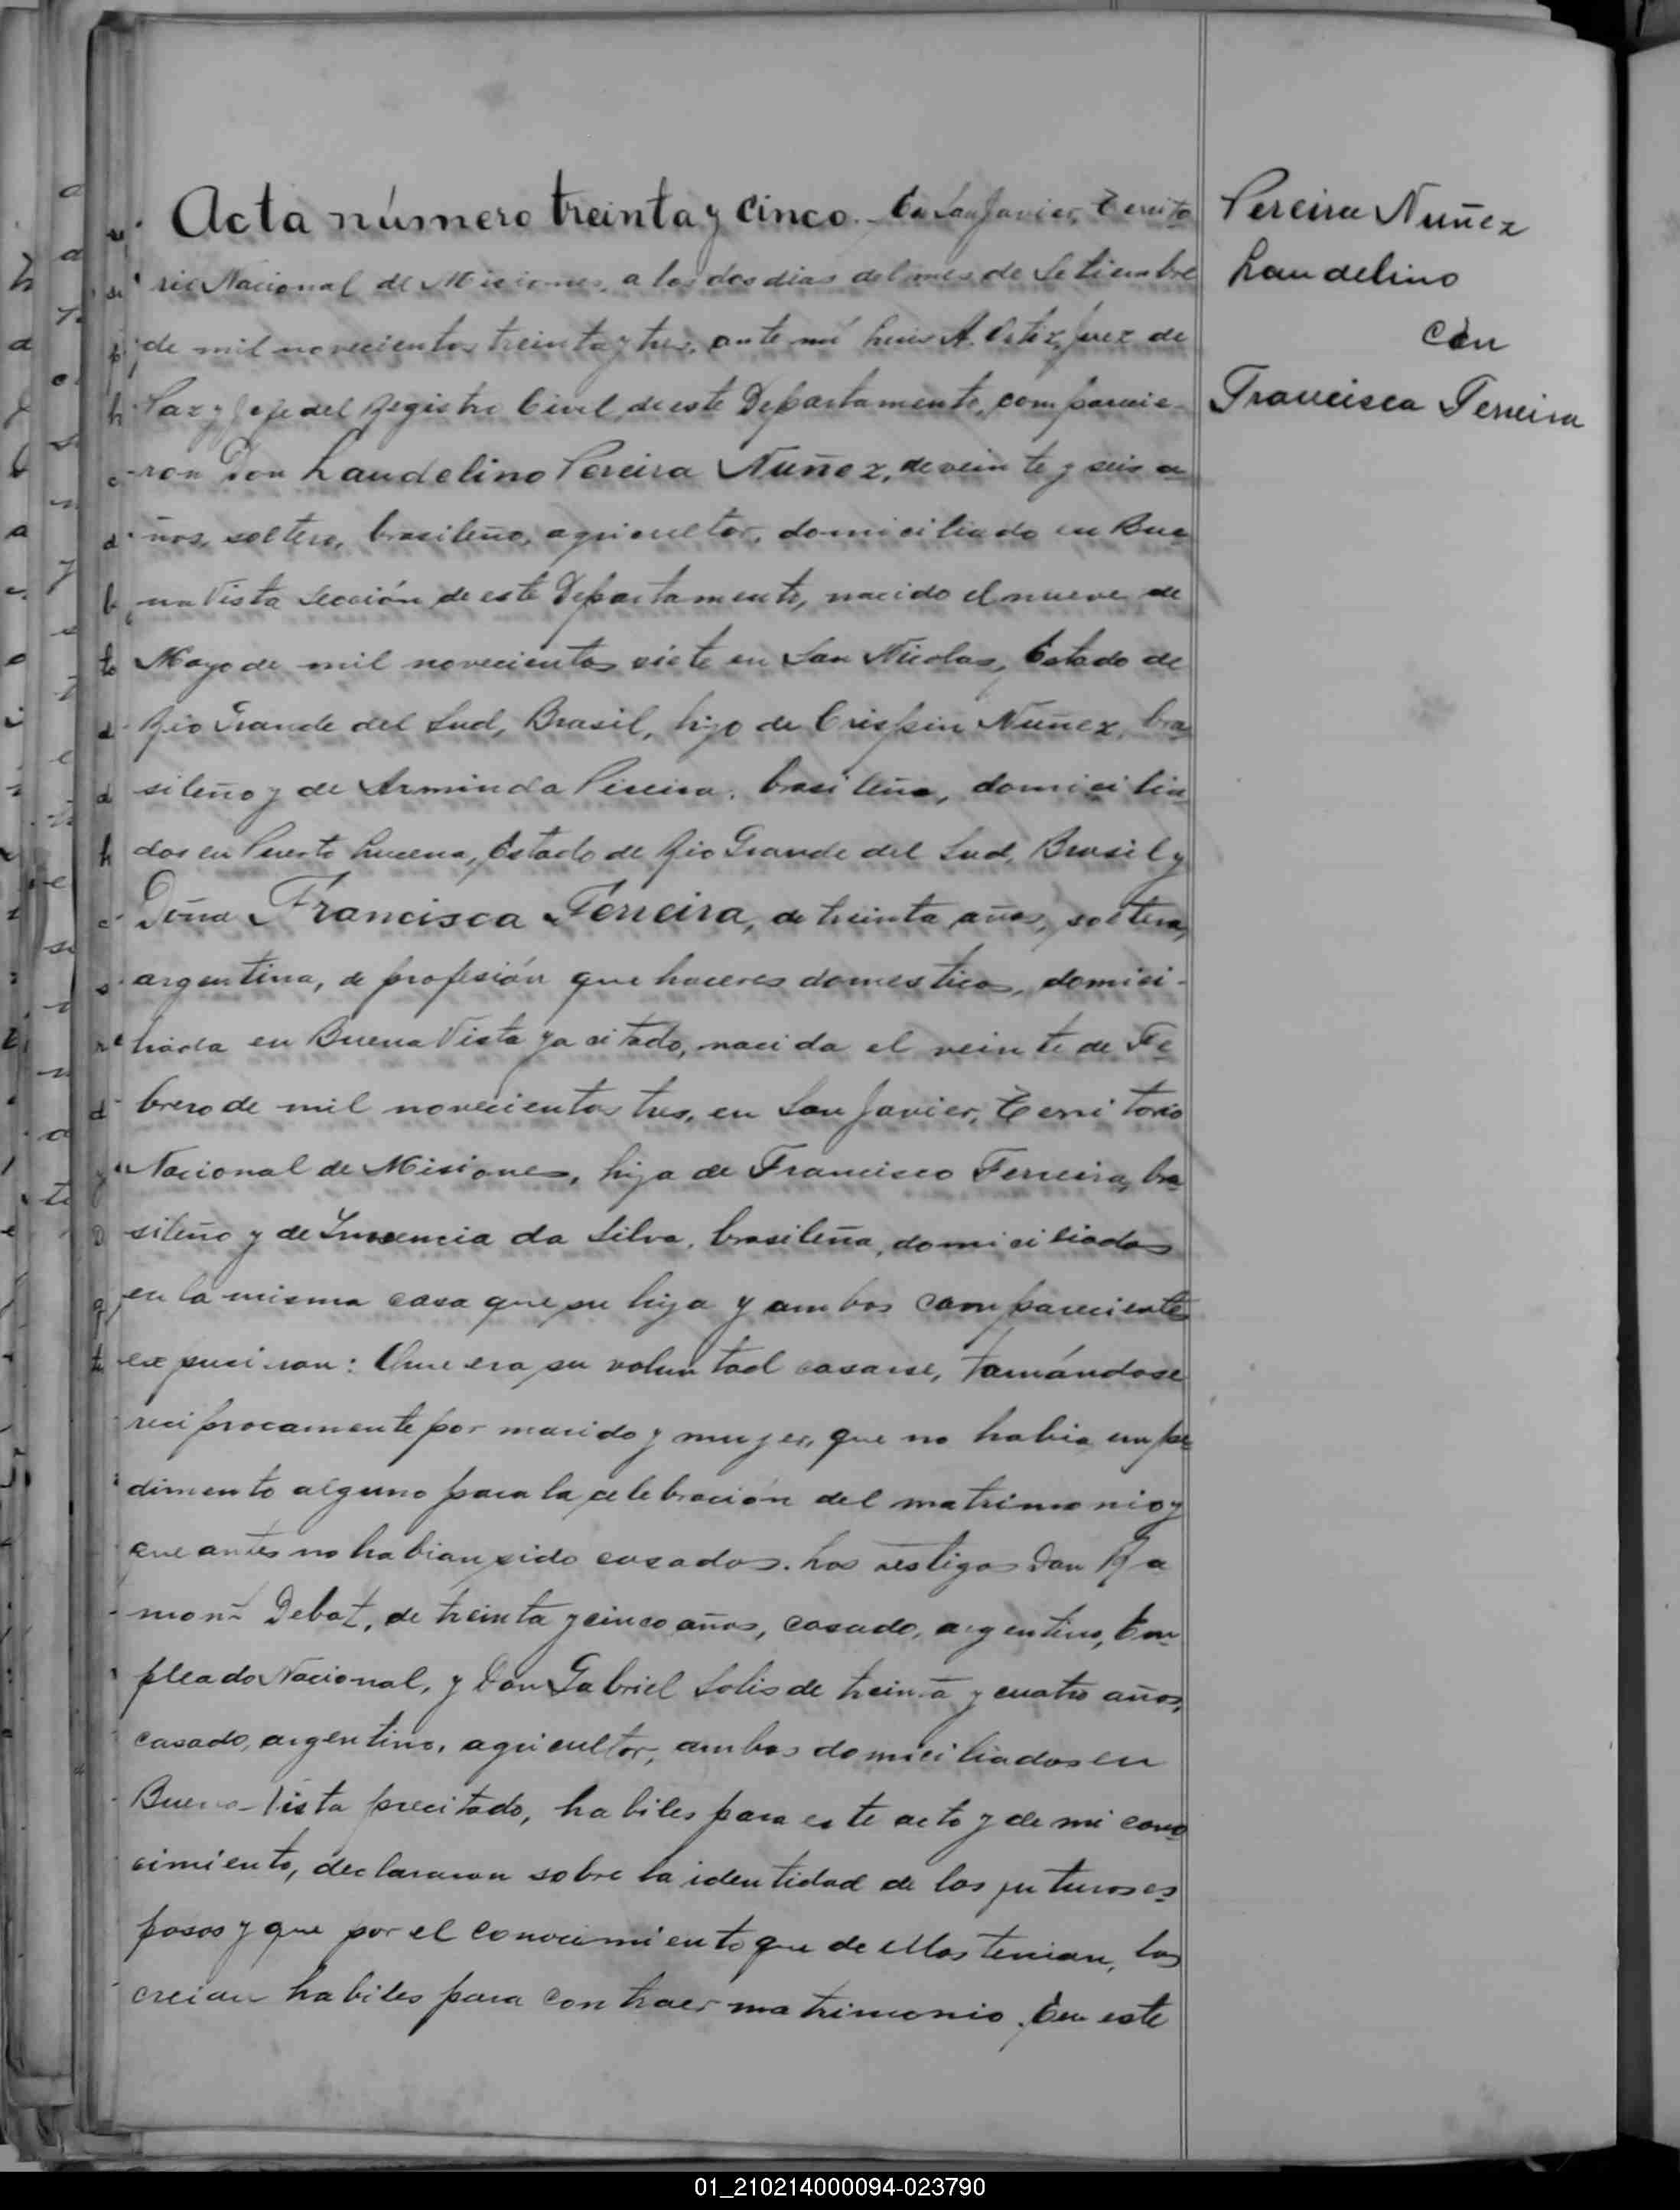 Acta número treinta y cinco. En San Javier, Territo
rio Nacional de Misiones, a los dos dias del mes de Setiembre
de mil novecientos treinta y tres, ante mi Luis A. Ortiz, Juez de
Paz y Jefe del Registro Civil, de este Departamento, comparecie-
ron Don Laudelino Pereira Nuñez, de veinte y seis a
ños, soltero, brasileño, agricultor, domiciliado en Bue
na Vista Sección de este Departamento, nacido el nueve de
Mayo de mil novecientos siete en San Nicolas, Estado de
Rio Grande del Sud, Brasil, hijo de Crispin Nuñez, bra
sileño y de Arminda Pereira, brasileña, domicilia
dos en Puerto Lucena, Estado de Rio Grande del Sud, Brasil y
Doña Francisca Ferreira, de treinta años, soltera,
argentina, de profesión que haceres domesticos, domici-
liada en Buena Vista ya citado, nacida el veinte de Fe
brero de mil novecientos tres, en San Javier, Territorio
Nacional de Misiones, hija de Francisco Ferreira, bra
sileño y de Inocencia da Silva, brasileña, domiciliados
en la misma casa que su hija y ambos comparecientes
expusieron: Que era su voluntad casarse, tomándose
reciprocamente por marido y mujer, que no habia impe
dimento alguno para la celebración del matrimonio y
que antes no habian sido casados. Los testigos Don Ra
mon Debat, de treinta y cinco años, casado, argentino, Em
pleado Nacional, y Don Gabriel Solis de treinta y cuatro años,
casado, argentino, agricultor, ambos domiciliados en
Buena Vista precitado, habiles para este acto y de mi cono
cimiento, declararon sobre la identidad de los futuros es
posos y que por el conocimiento que de ellos tenian, los
creian habiles para contraer matrimonio. En este
Pereira Nuñez
Laudelino
con
Francisca Ferreira
01_210214000094-023790